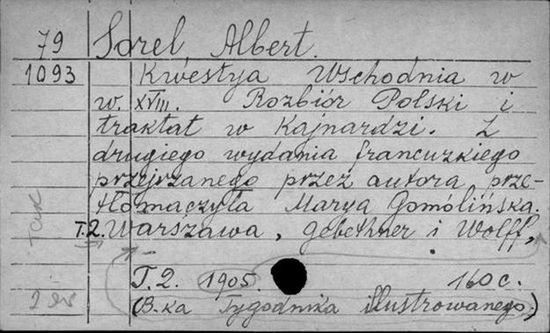 79 Sorel Albert.
1093 Kwestya Wschodnia w
w. XVIII. Rozbiór Polski i
traktat w Kajnardzi. Z
drugiego wydania francuzkiego
przejrzanego przez autora prze-
tłomaczyła Marya Gomólińska.
T.2. Warszawa, Gebethner i Wolff,
T.2. 1905. 160 c.
(B-ka Tygodnika illustrowanego)